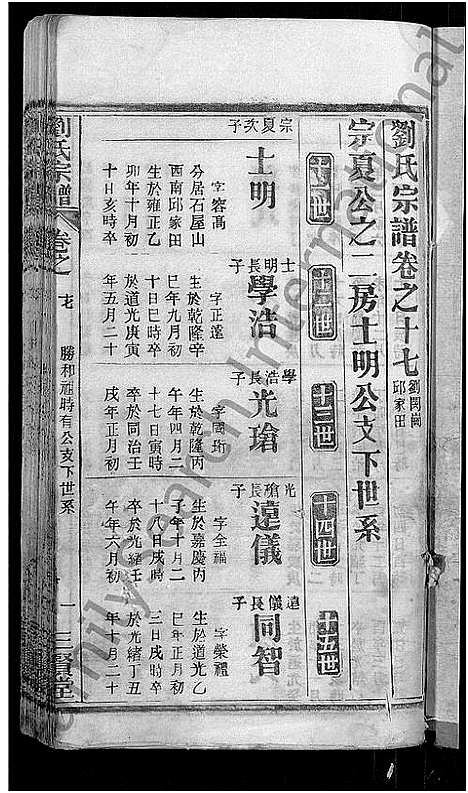 劉氏宗譜卷之十七 劉閔崗 邱家田
宗夏公之二房士明公支下世系
十一世
十二世
十三世
十四世
十五世
宗夏次子
士明
字容萬
分居石屋山
西南邱家田
生於雍正乙
卯年十月初
十日亥時卒
士明長子
學浩
字正蓬
生於乾隆辛
巳年九月初
十日巳時卒
於道光庚寅
年五月二十
學浩長子
光瑲
字國珩
生於乾隆丙
午年四月二
十七日寅時
卒於同治壬
戌年正月初
光瑲長子
遠儀
字全福
生於嘉慶丙
子年十月二
十八日戌時
卒於光緒壬
午年六月初
遠儀長子
同智
字榮禮
生於道光乙
巳年正月初
三日戌時卒
於光緒丁丑
年十月二十
劉氏宗譜
卷之
勝和祖時有公支下世系
一
三寶堂
FamilySearch International